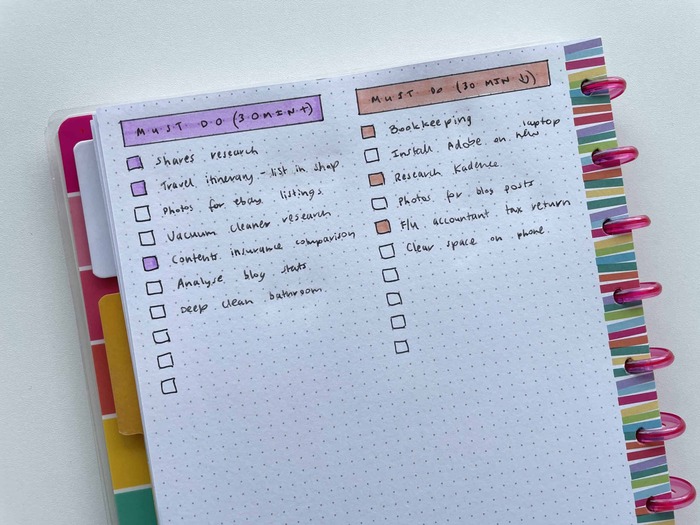 MUST DO (30MIN+)
Shares research
Travel itinerary - list in shop
Photos for ebay listings
Vacuum cleaner research
Contents insurance comparison
Analyse blog stats
Deep clean bathroom
MUST DO (30 MIN ↓)
Bookkeeping
Install Adobe on new laptop
Research Kadence
Photos for blog posts
F/u accountant tax return
Clear space on phone